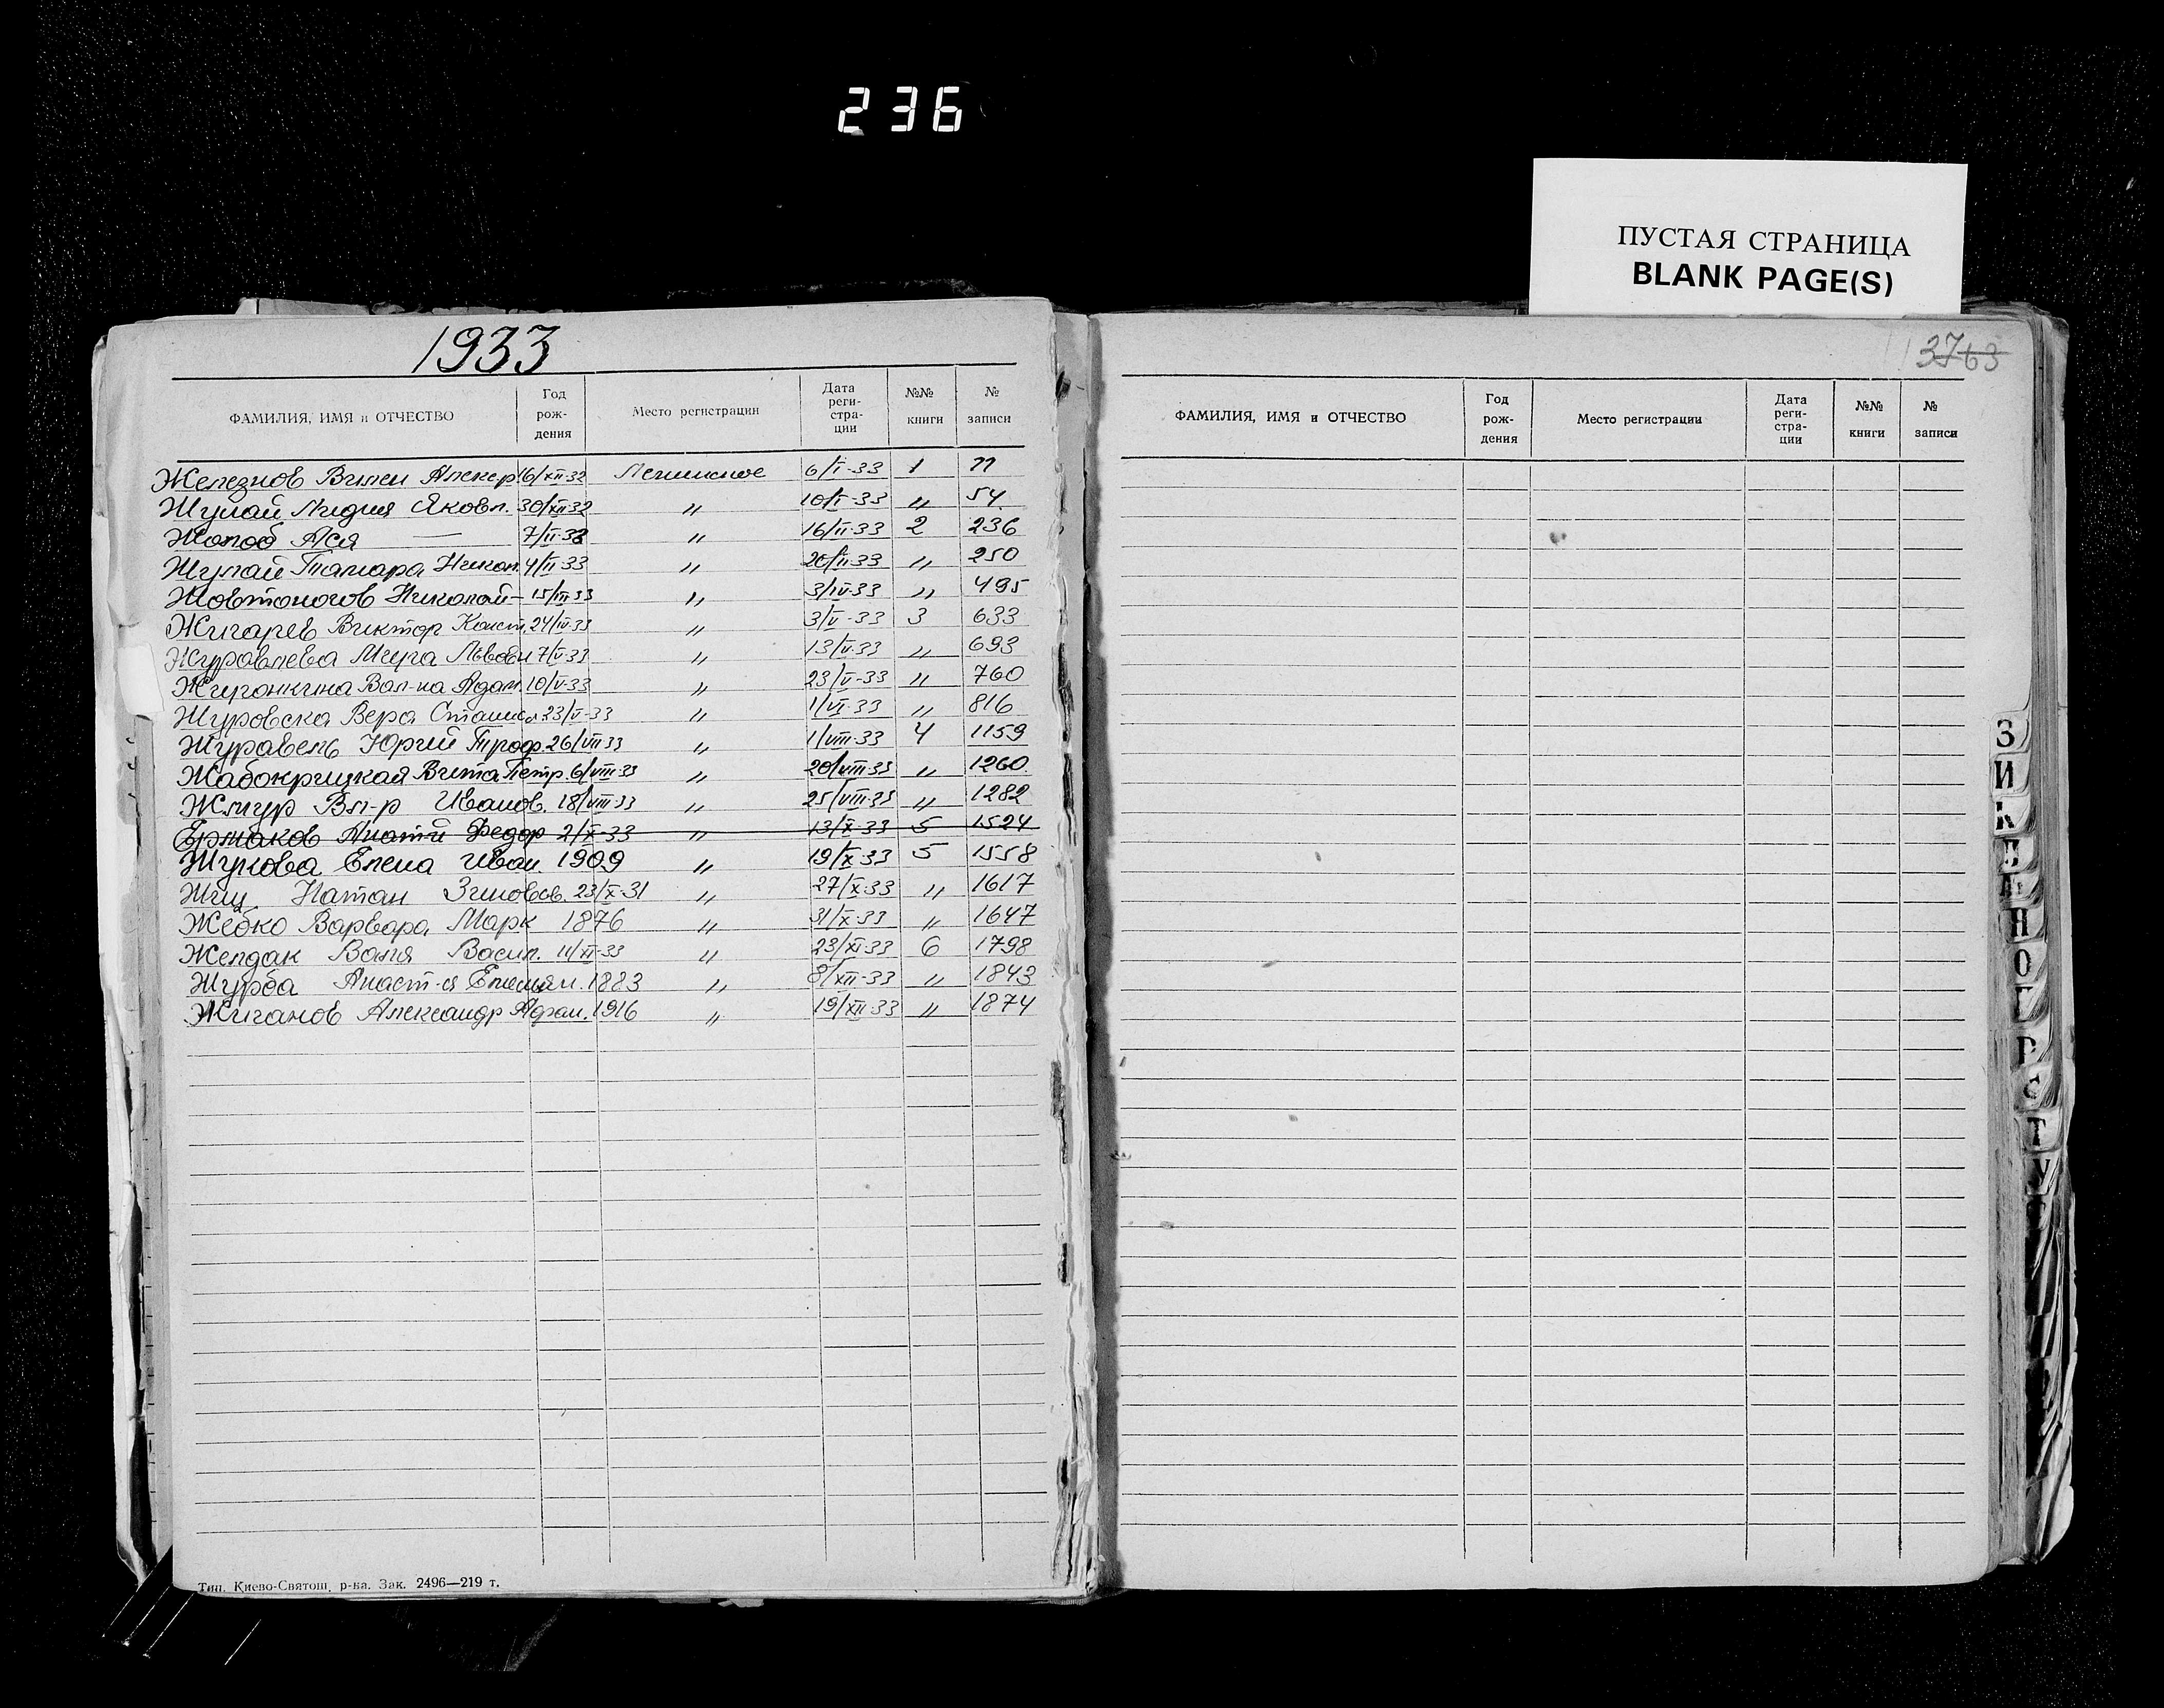 236
ПУСТАЯ СТРАНИЦА
BLANK PAGE(S)
1933
ФАМИЛИЯ, ИМЯ и ОТЧЕСТВО Год рож-дения Место регистрации Дата реги-стра-ции №№ книги № записи
Железнов Вилен Алекср. 16/XII-32 Ленинское 6/I-33 1 11
Жулай Лидия Яковл. 30/XII-32 " 10/I-33 " 54
Жолоб Ася — 7/II-33 " 16/II-33 2 236
Жулай Тамара Никол. 4/II-33 " 20/II-33 " 250
Жовтоногов Николай — 15/III-33 " 3/IV-33 " 495
Жигарев Виктор Конст. 24/IV-33 " 3/V-33 3 633
Журавлева Мира Львовн 7/V-33 " 13/V-33 " 693
Вал-на Адам. 10/V-33 " 23/V-33 " 760
Журовска Вера Станисл 23/V-33 " 1/VI-33 " 816
Журавель Юрий Троф. 26/VII 33 " 1/VIII-33 4 1159
Жабокрицкая Вита Петр. 6/VIII-33 " 20/VIII-33 " 1260
Жмур Вл-р Иванов. 18/VIII-33 " 25/VIII-33 " 1282
Ермаков Анатий Федор 2/X-33 " 13/X-33 5 1524
Жукова Елена Иван. 1909 " 19/X-33 5 1558
Жиц Натан Зиновьв. 23/X-31 " 27/X-33 " 1617
Жебко Варвара Марк 1876 " 31/X-33 " 1647
Желдак Валя Васил. 11/XI-33 " 23/XI-33 6 1798
Журба Анаст-я Емельян. 1883 " 8/XII-33 " 1843
Жиганов Александр Афан. 1916 " 19/XII-33 " 1874
Тип. Киево-Святош. р-на. Зак. 2496—219 т.
3763
ФАМИЛИЯ, ИМЯ и ОТЧЕСТВО Год рож-дения Место регистрации Дата реги-стра-ции №№ книги № записи
З
И
К
Л
М
Н
О
П
Р
С
Т
У